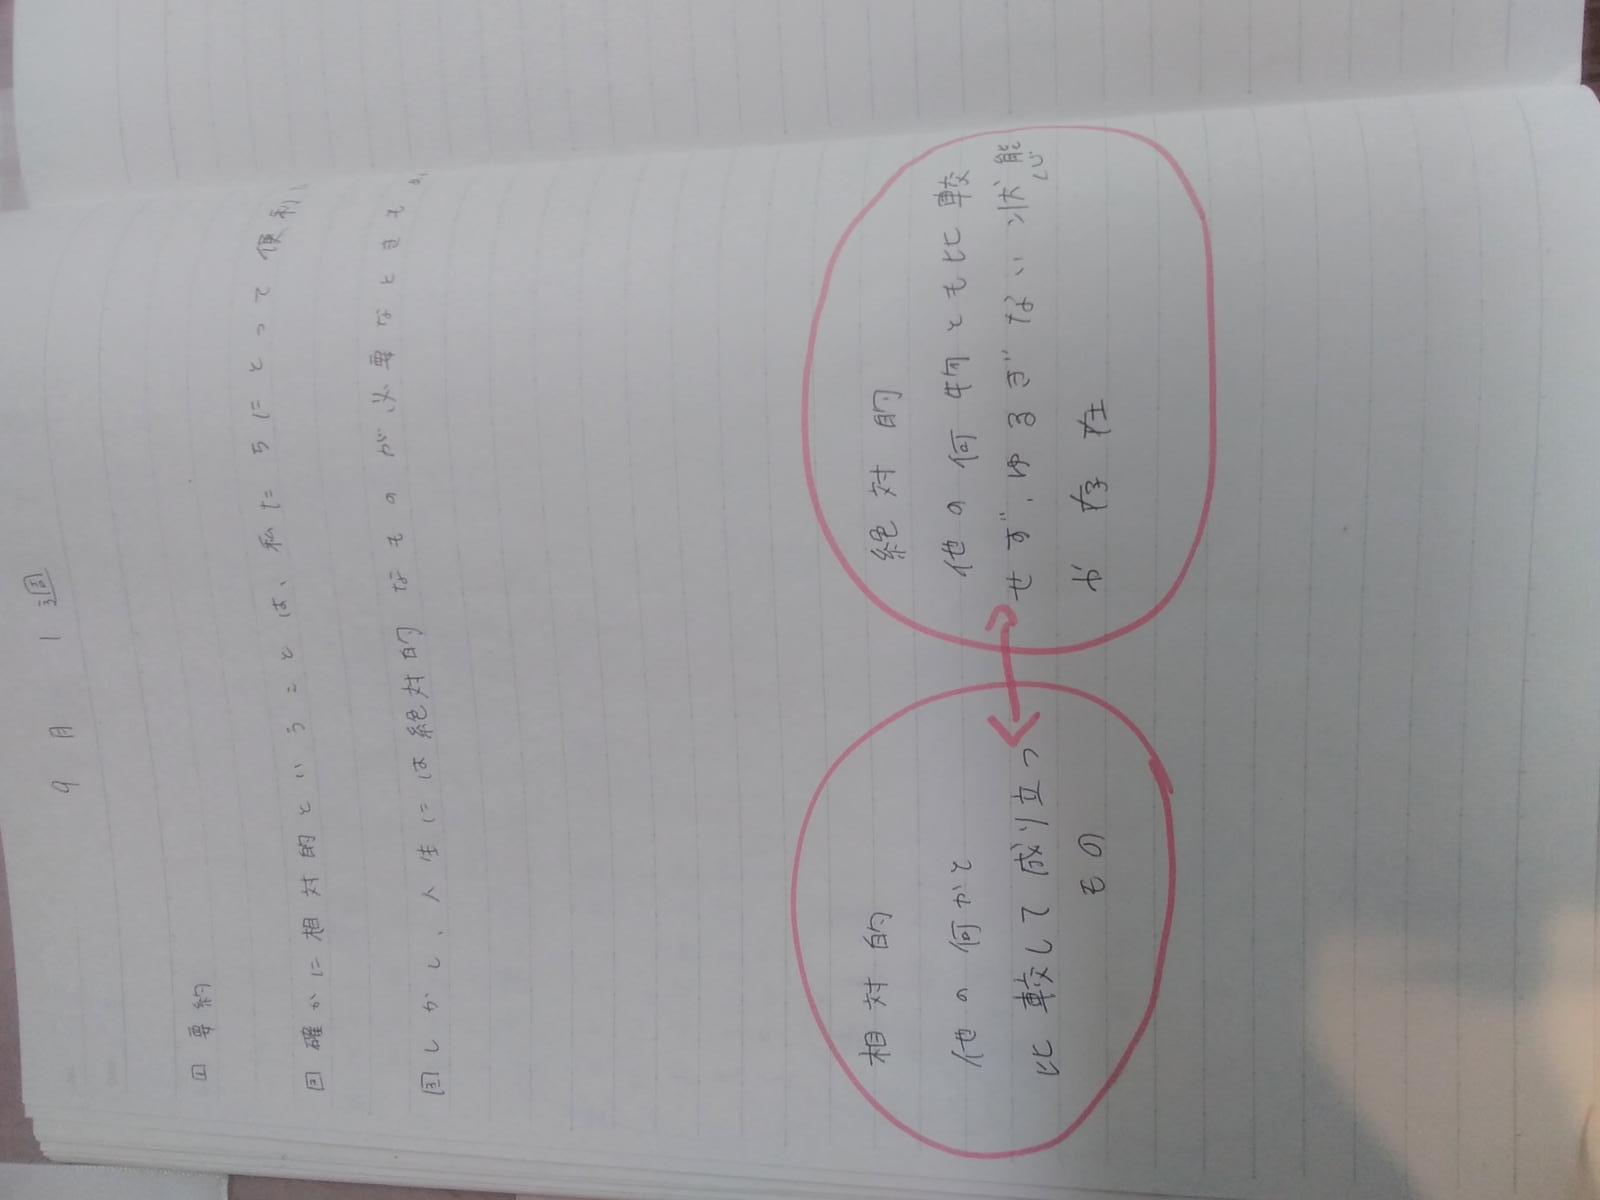 9月 1週
□ 要約
□ 確かに相対的ということは、私たちにとって便利
□ しかし、人生には絶対的なものが必要なときも
相対的
他の何かと
比較して成り立つ
もの
絶対的
他の何物とも比較
せず、ゆるぎない状態
か存在